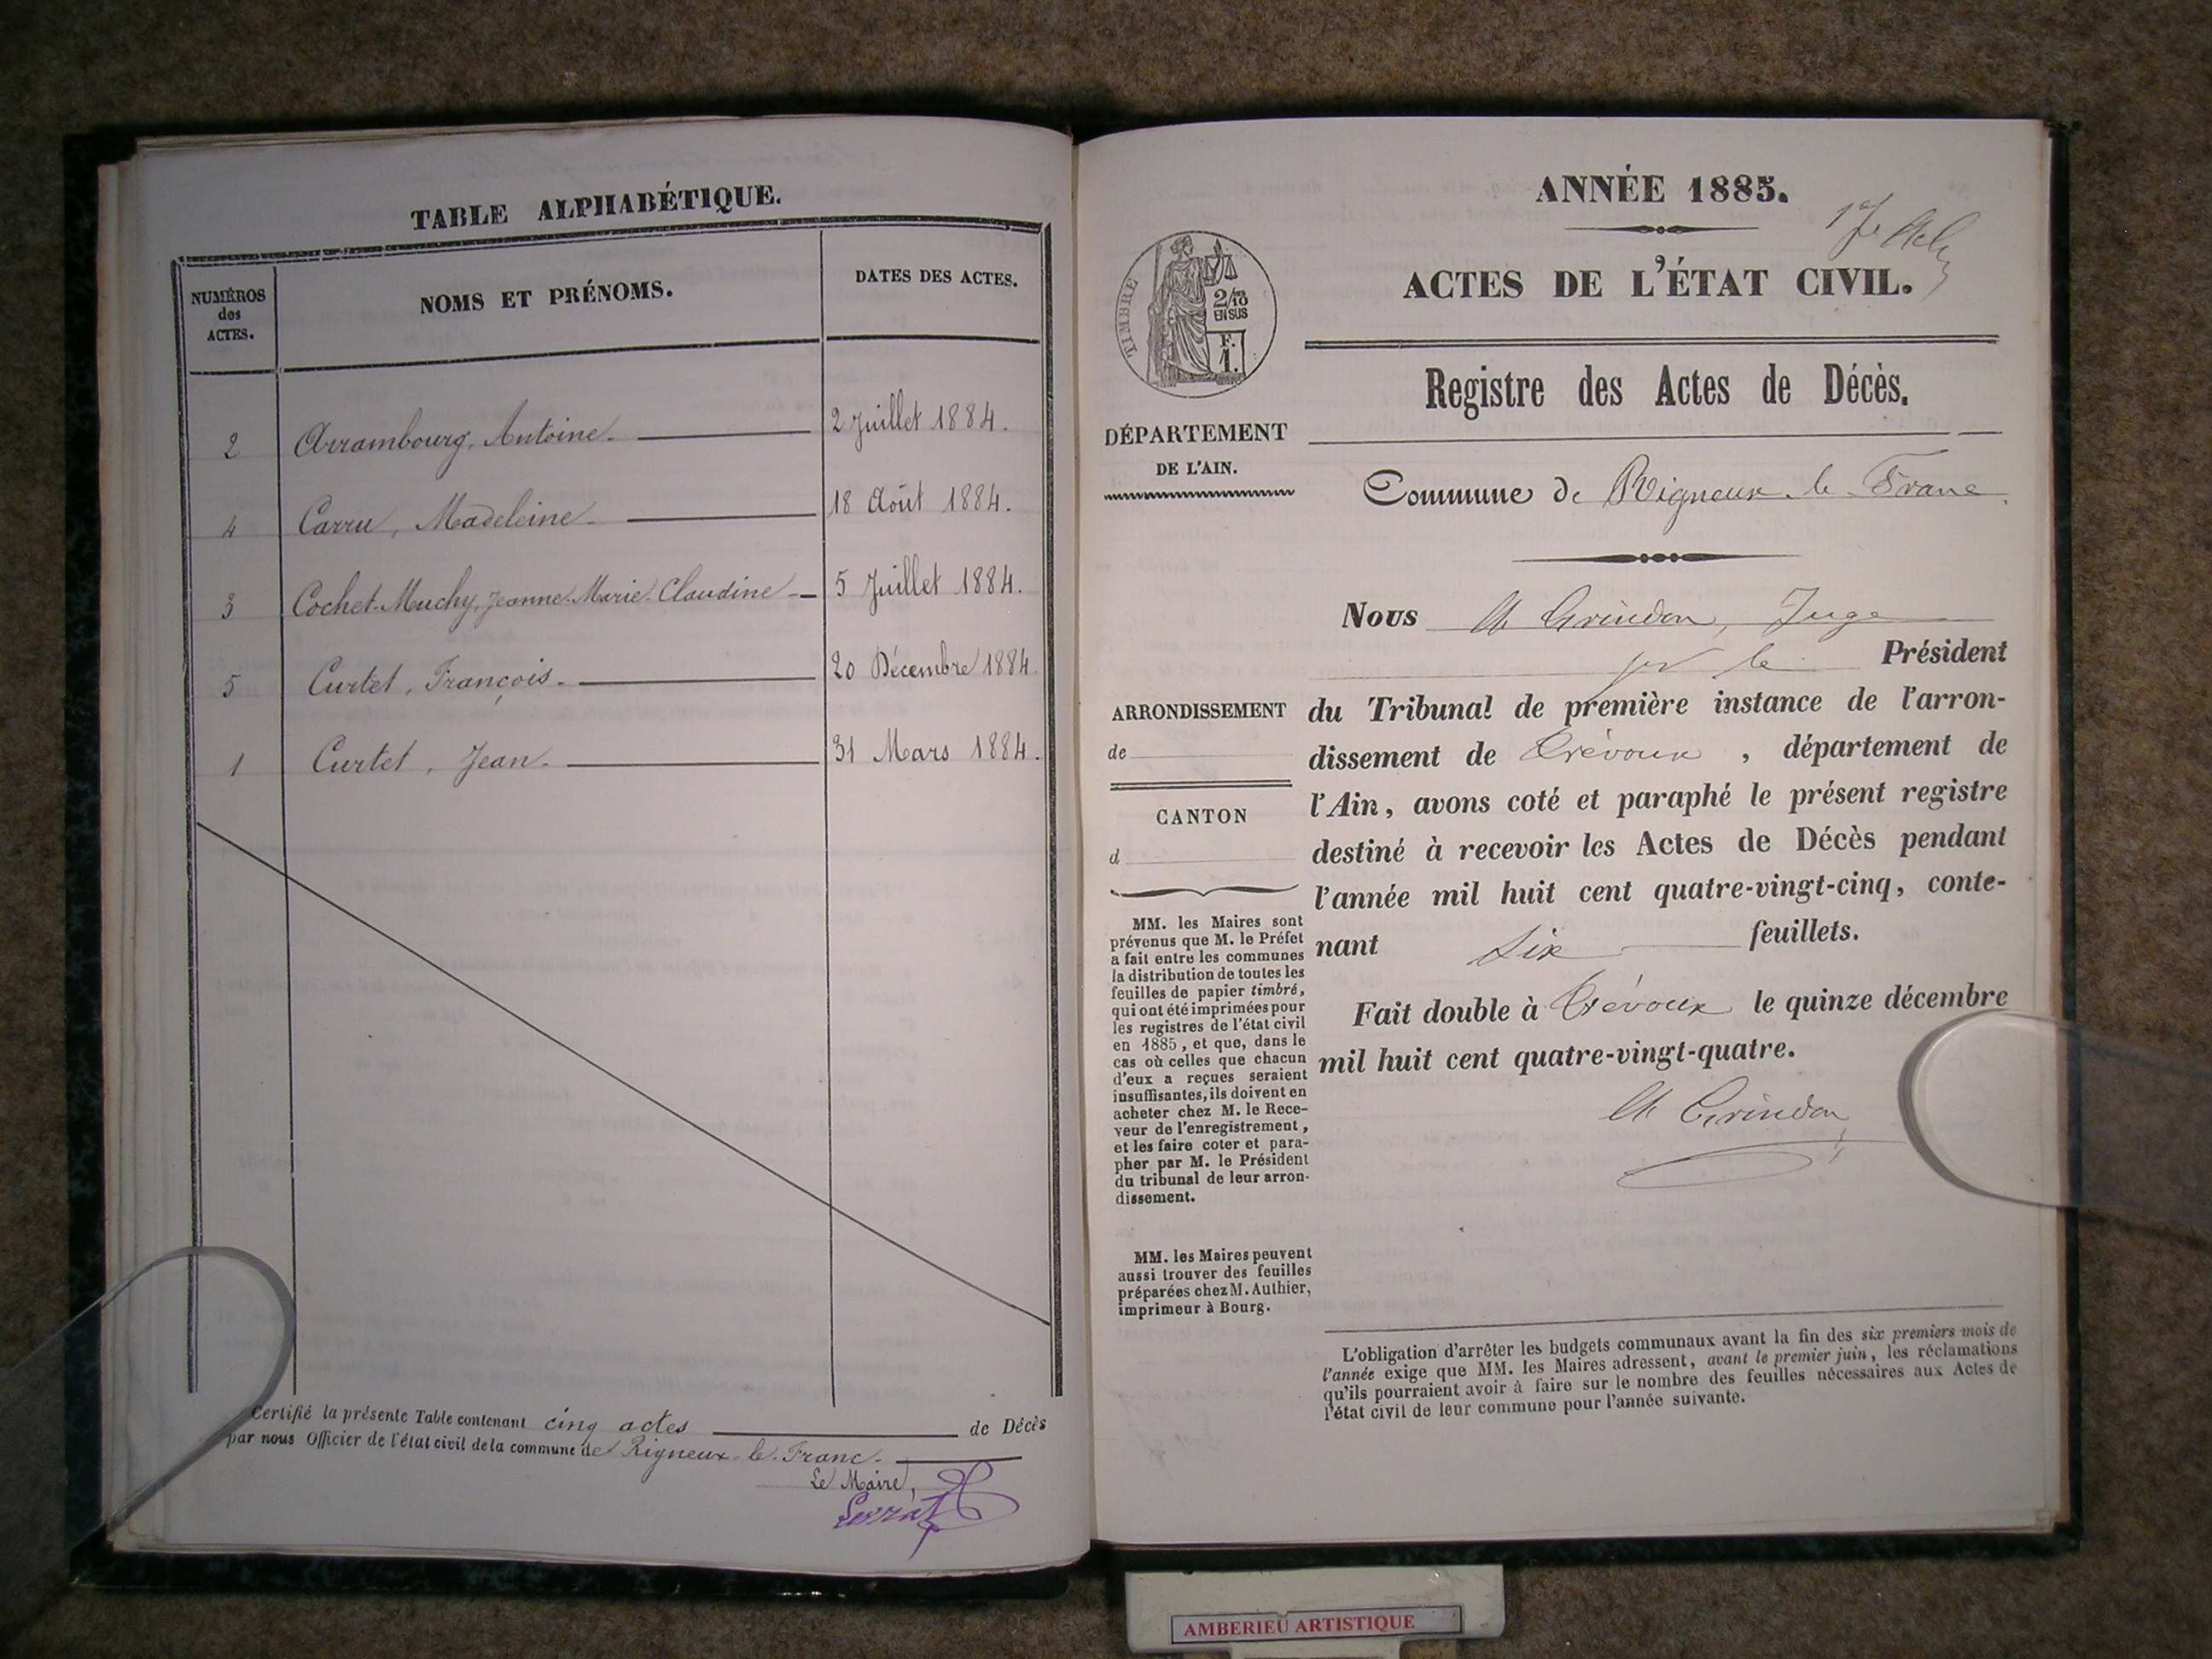 TABLE ALPHABÉTIQUE.
NUMÉROS
des
ACTES.
NOMS ET PRÉNOMS.
DATES DES ACTES.
2 Arrambourg, Antoine. 2 Juillet 1884.
4 Carru, Madeleine 18 Août 1884.
3 Cochet-Muchy, Jeanne-Marie-Claudine 5 Juillet 1884.
5 Curtet, François. 20 Décembre 1884.
1 Curtet, Jean. 31 Mars 1884.
Certifié la présente Table contenant cinq actes de Décès
par nous Officier de l'état civil de la commune de Rigneux-le-Franc.
Le Maire,
ANNÉE 1885.
ACTES DE L'ÉTAT CIVIL.
TIMBRE
2/10
EN SUS
F.
1.
Registre des Actes de Décès.
DÉPARTEMENT
DE L'AIN.
Commune de Rigneux le Franc
Nous Grindon, Juge
pr le Président
du Tribunal de première instance de l'arron-
dissement de Trévoux, département de
l'Ain, avons coté et paraphé le présent registre
destiné à recevoir les Actes de Décès pendant
l'année mil huit cent quatre-vingt-cinq, conte-
nant six feuillets.
Fait double à Trévoux le quinze décembre
mil huit cent quatre-vingt-quatre.
Grindon
ARRONDISSEMENT
de
CANTON
d
MM. les Maires sont
prévenus que M. le Préfet
a fait entre les communes
la distribution de toutes les
feuilles de papier timbré,
qui ont été imprimées pour
les registres de l'état civil
en 1885, et que, dans le
cas où celles que chacun
d'eux a reçues seraient
insuffisantes, ils doivent en
acheter chez M. le Rece-
veur de l'enregistrement,
et les faire coter et para-
pher par M. le Président
du tribunal de leur arron-
dissement.
MM. les Maires peuvent
aussi trouver des feuilles
préparées chez M. Authier,
imprimeur à Bourg.
L'obligation d'arrêter les budgets communaux avant la fin des six premiers mois de
l'année exige que MM. les Maires adressent, avant le premier juin, les réclamations
qu'ils pourraient avoir à faire sur le nombre des feuilles nécessaires aux Actes de
l'état civil de leur commune pour l'année suivante.
AMBERIEU ARTISTIQUE